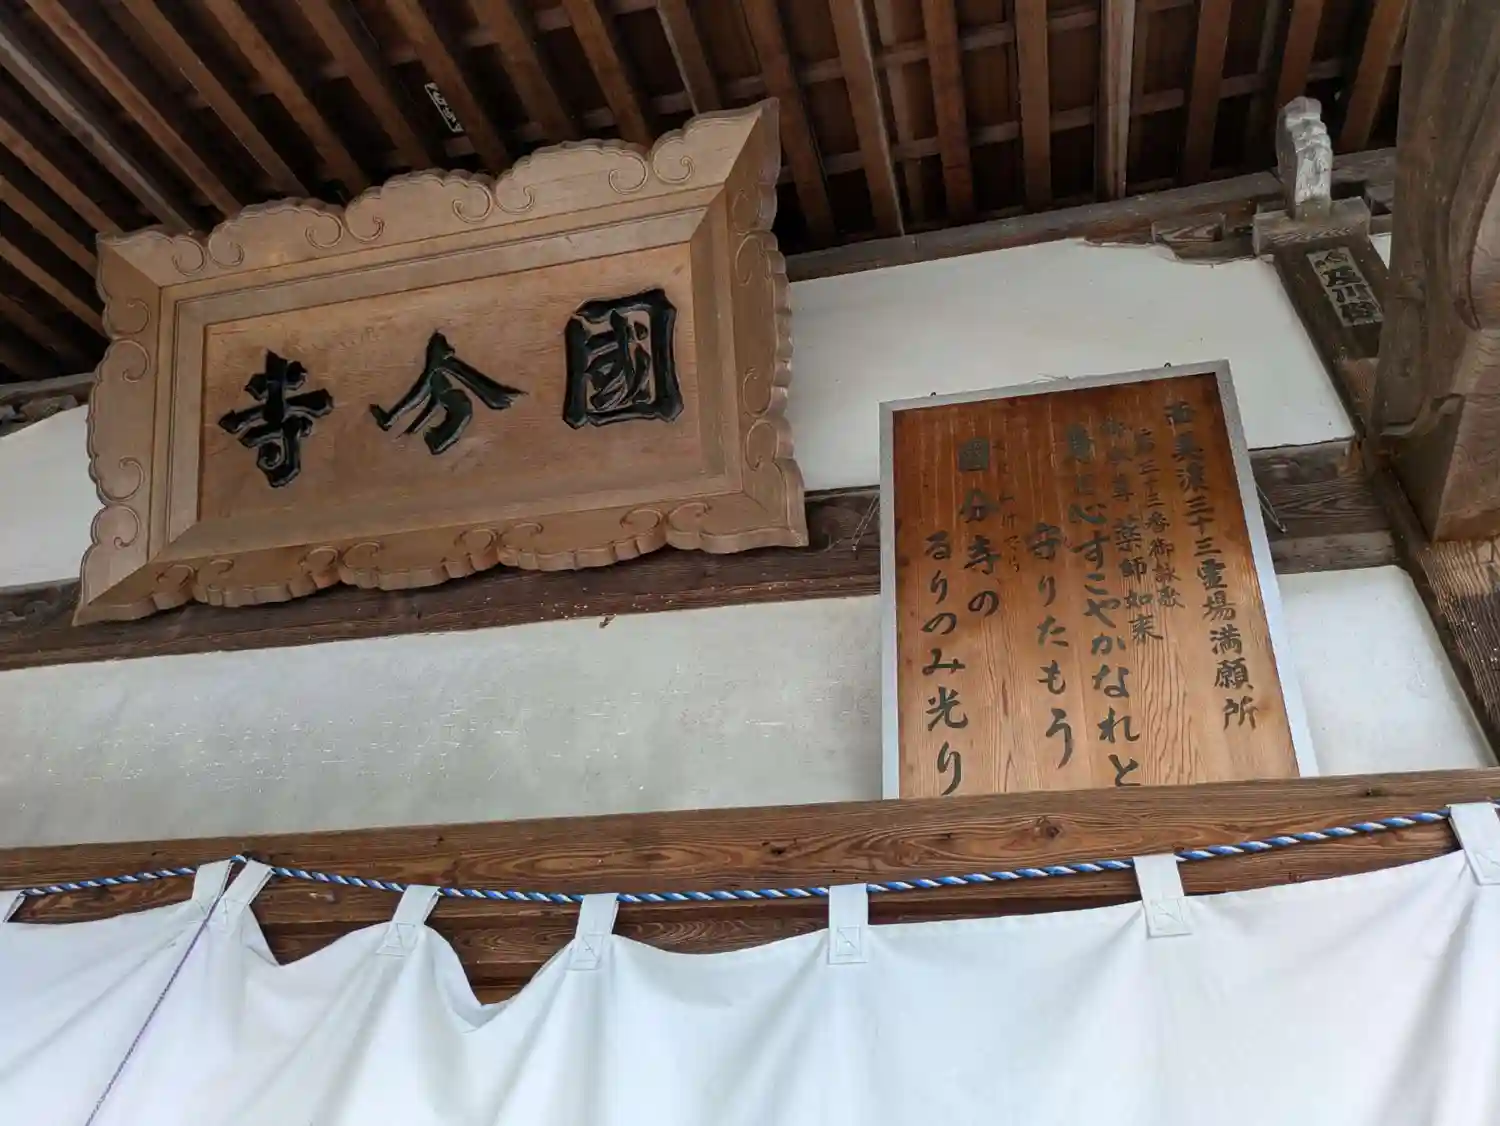 國分寺
西美濃三十三霊場満願所
第三十三番御詠歌
御本尊 薬師如来
身も心すこやかなれと
守りたもう
國分寺の
るりのみ光り